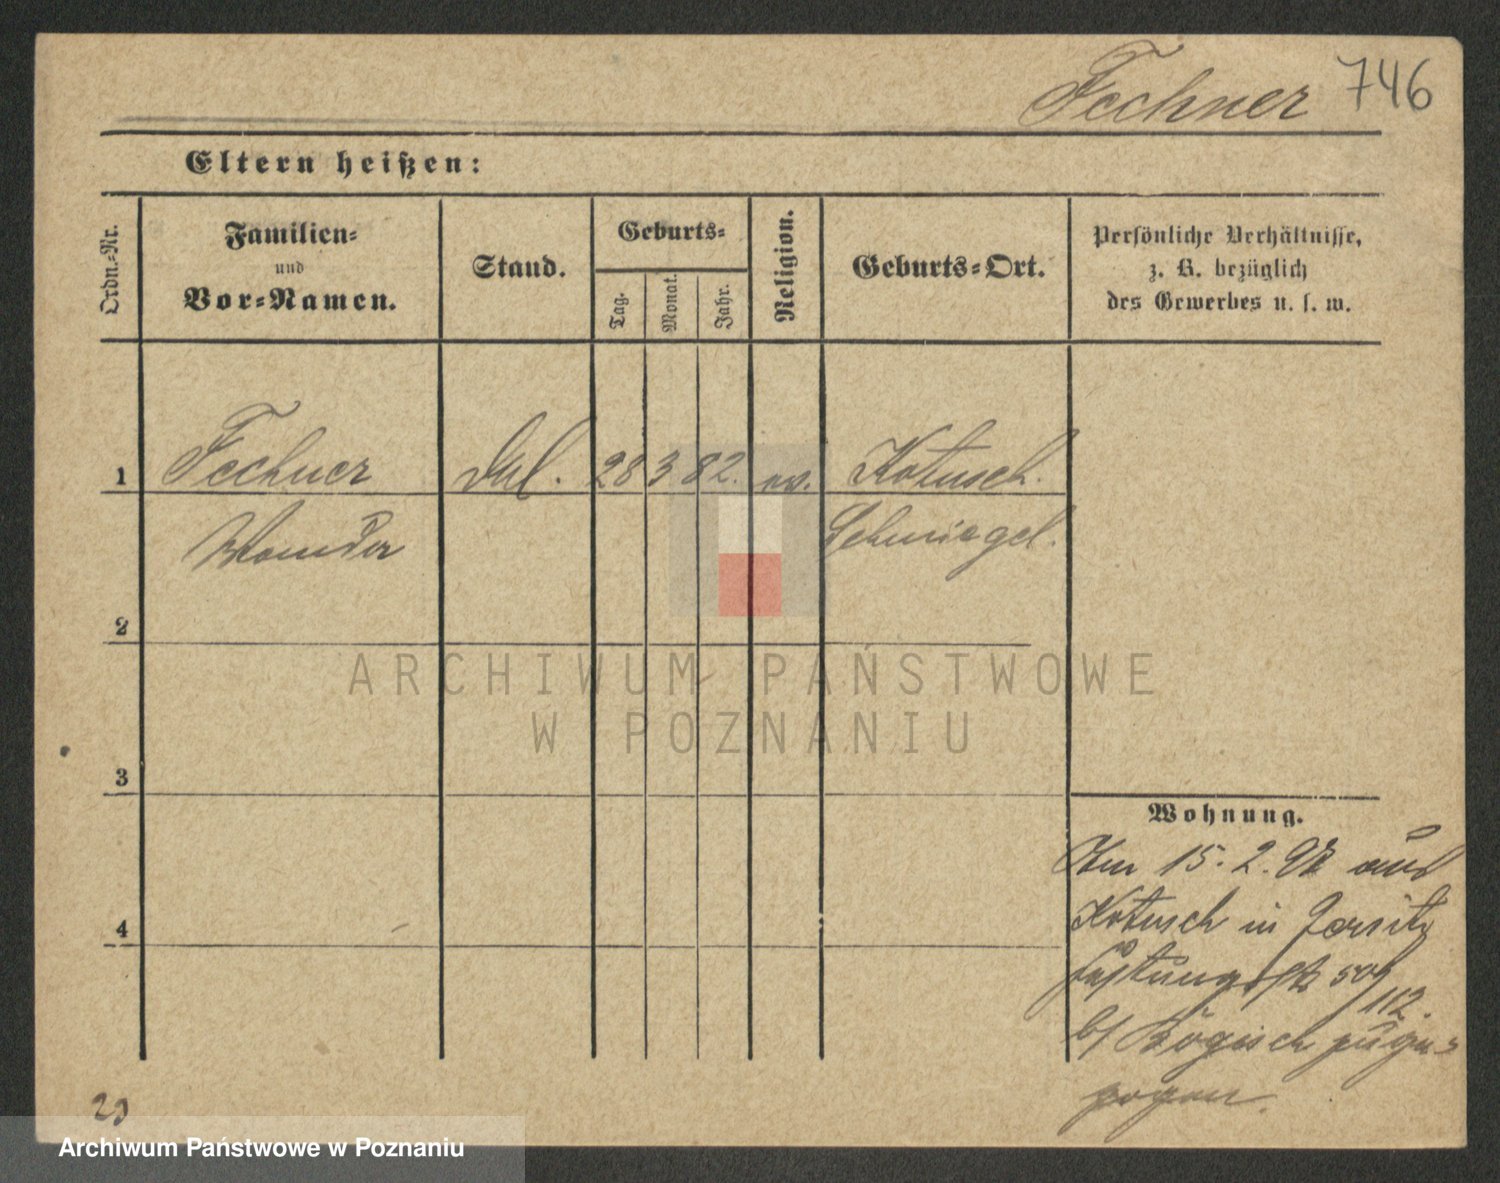 Fechner 746
Eltern heißen:
Ordn.-Nr.
Familien-
und
Vor-Namen.
Stand.
Geburts-
Tag.
Monat.
Jahr.
Religion.
Geburts-Ort.
Persönliche Verhältnisse,
z. B. bezüglich
des Gewerbes u. s. w.
1 Fechner 28 3 82. ev. Kotusch.
Schmiegel.
2
3
4
Wohnung.
Am 15. 2. aus
Kotusch in Jersitz
112.
zuge-
zogen.
ARCHIWUM PAŃSTWOWE
W POZNANIU
Archiwum Państwowe w Poznaniu